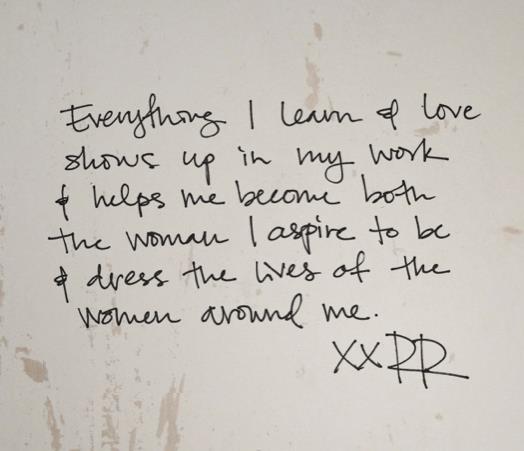 Everything I learn & love
shows up in my work
& helps me become both
the woman I aspire to be
& dress the lives of the
women around me.
xx RR